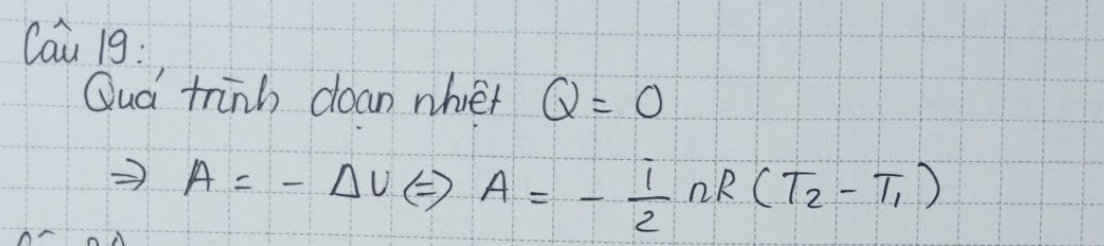 Câu 19:
Quá trình đoạn nhiệt Q = 0
⇒ A = - ΔU ⇔ A = - i/2 nR (T₂ - T₁)